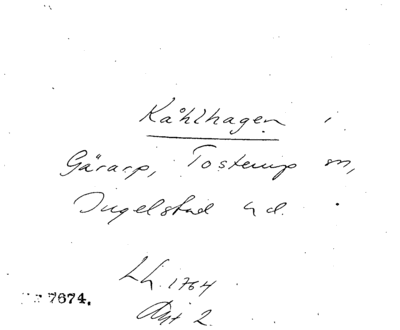 Kåhlhagen i
Gårarp, Tosterup sn,
Ingelstad hd.
Lh. 1764
Akt 2
7674.